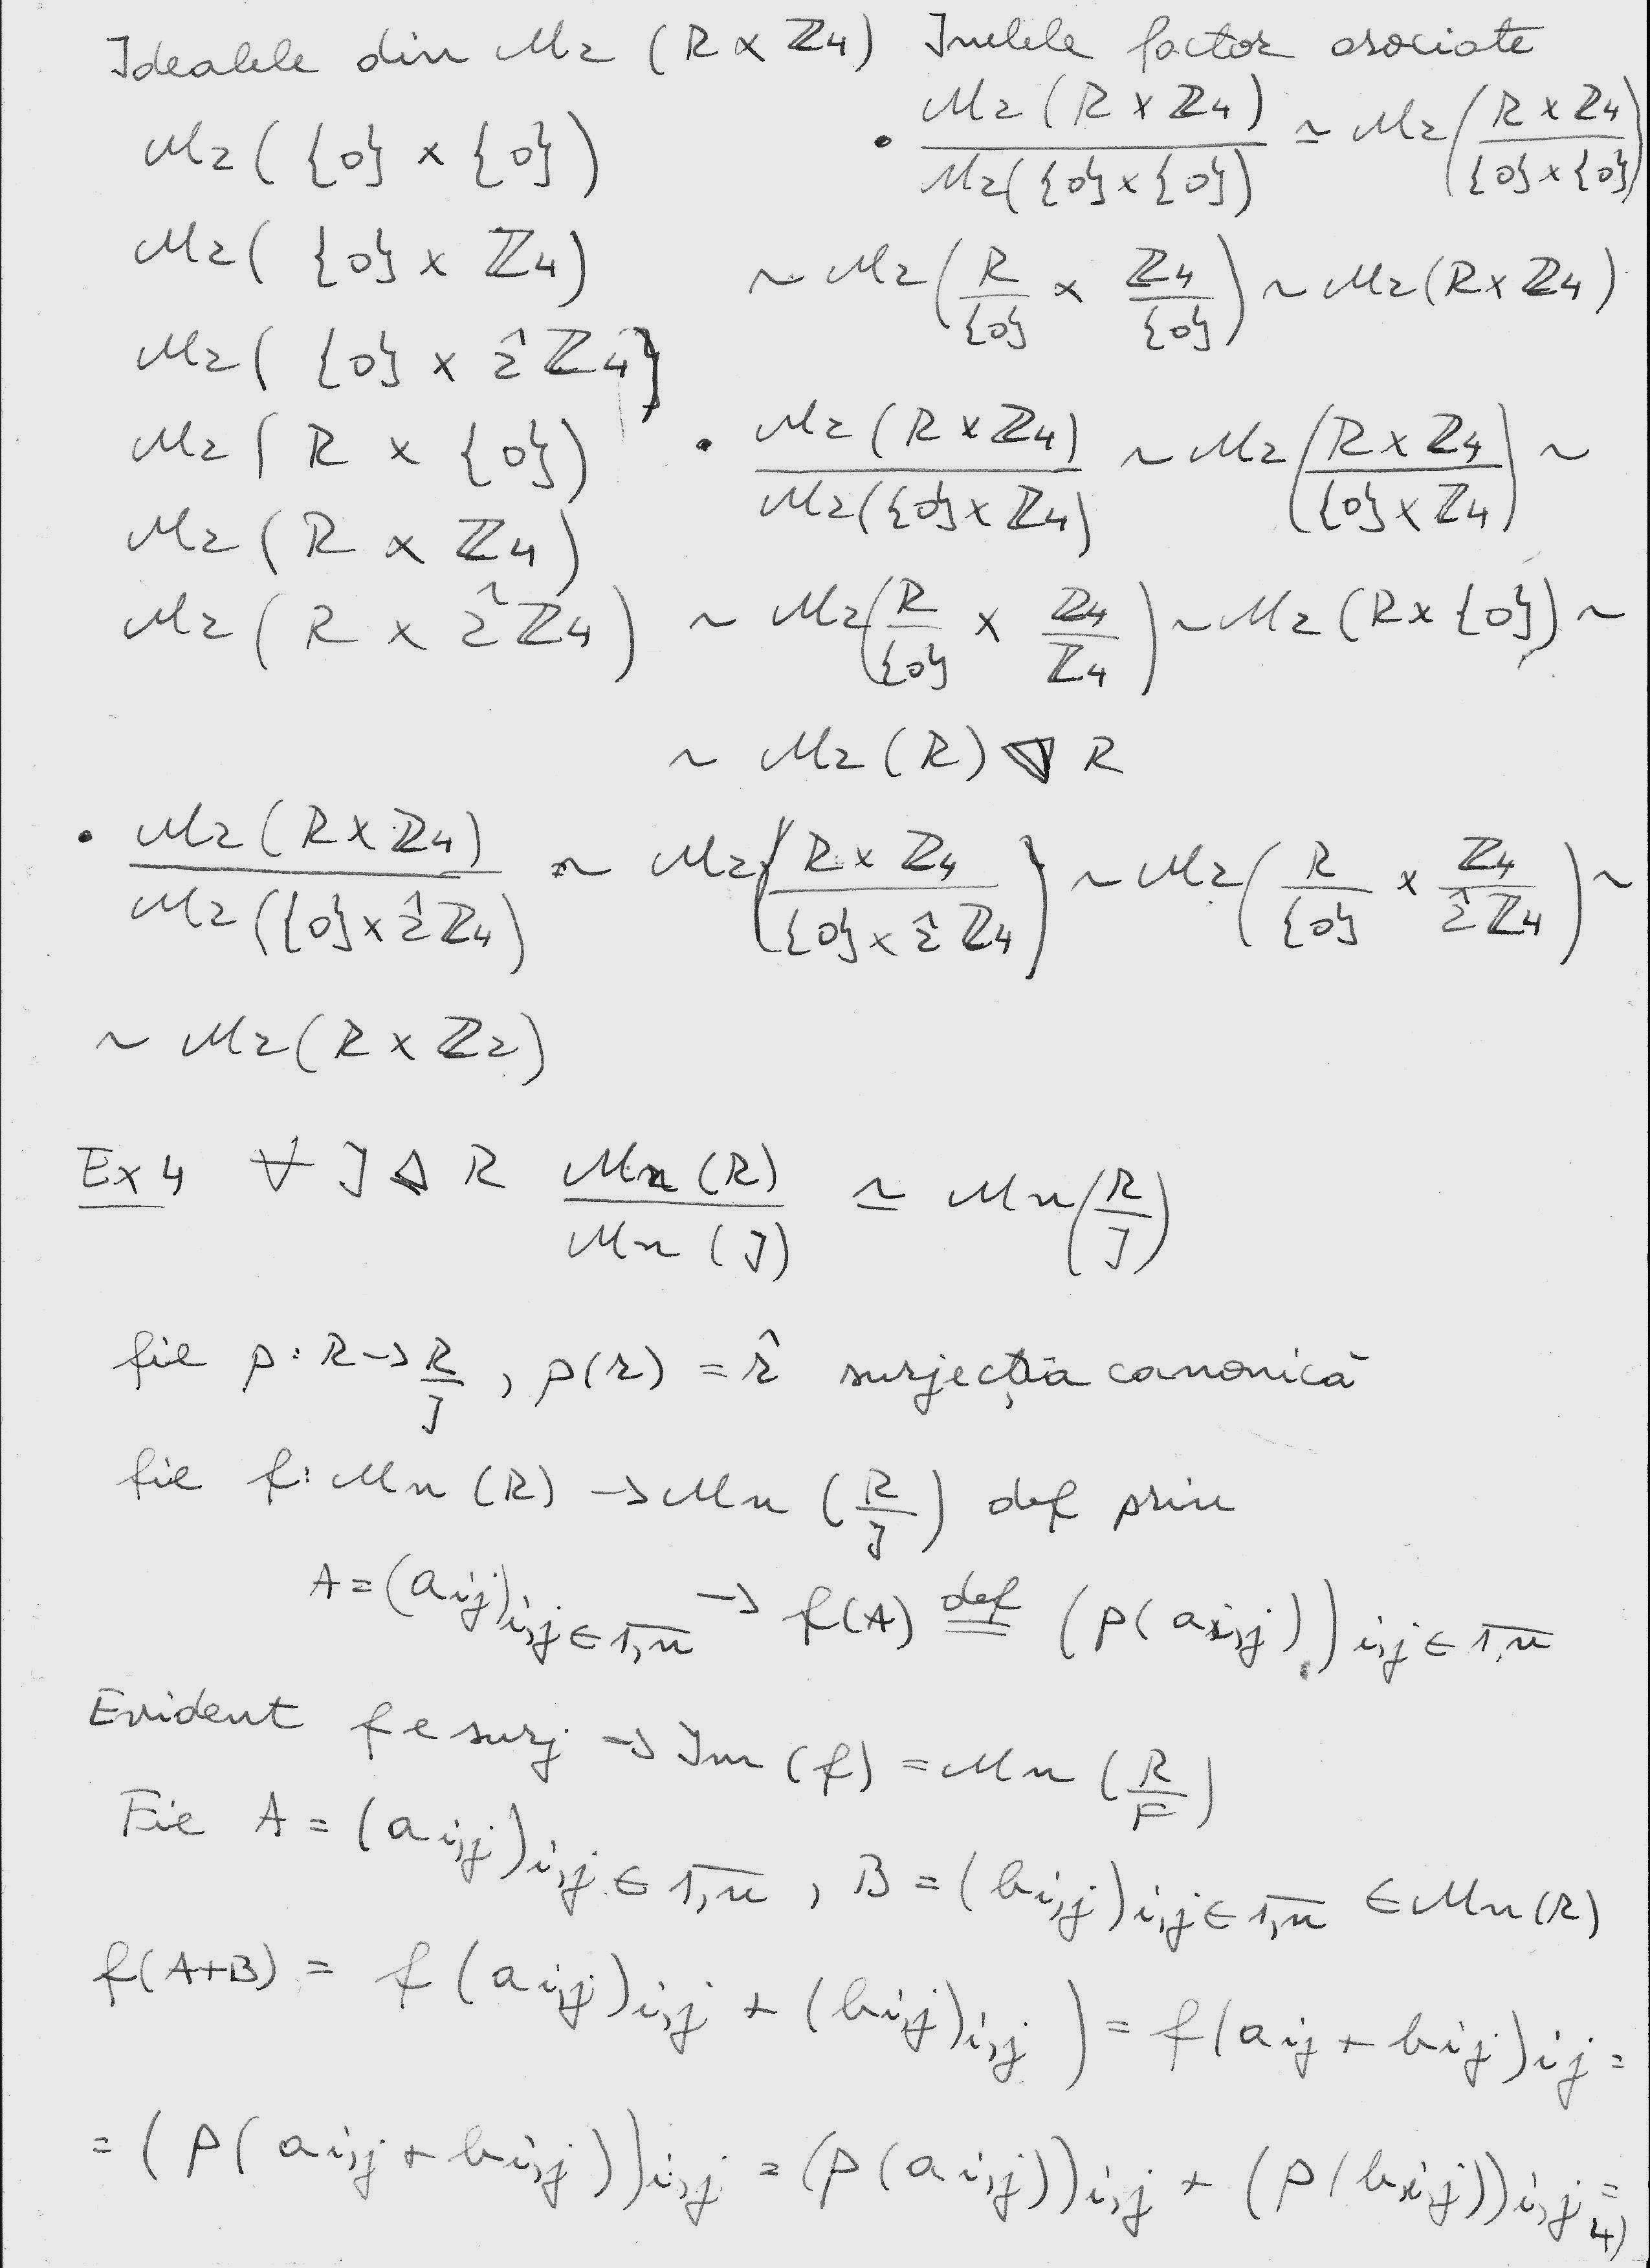 Idealele din M₂ (R × ℤ₄) Inelele factor asociate
M₂ ({0} × {0})
• M₂ (R × ℤ₄) / M₂ ({0} × {0}) ≃ M₂ (R × ℤ₄ / {0} × {0})
M₂ ({0} × ℤ₄)
~ M₂ (R/{0} × ℤ₄/{0}) ~ M₂ (R × ℤ₄)
M₂ ({0} × 2̂ℤ₄)
M₂ (R × {0})
• M₂ (R × ℤ₄) / M₂ ({0} × ℤ₄) ~ M₂ (R × ℤ₄ / {0} × ℤ₄) ~
M₂ (R × ℤ₄)
M₂ (R × 2̂ℤ₄)
~ M₂ (R/{0} × ℤ₄/ℤ₄) ~ M₂ (R × {0}) ~
~ M₂ (R) ∇ R
• M₂ (R × ℤ₄) / M₂ ({0} × 2̂ℤ₄) ~ M₂ (R × ℤ₄ / {0} × 2̂ℤ₄) ~ M₂ (R/{0} × ℤ₄/2̂ℤ₄) ~
~ M₂ (R × ℤ₂)
Ex 4 ∀ J Δ R Mn (R) / Mn (J) ≃ Mn (R/J)
fie p : R → R/J , p(r) = r̂ surjecția canonică
fie f : Mn (R) → Mn (R/J) def prin
A = (aij)i,j ∈ 1,n → f(A) def= (p(ai,j))i,j ∈ 1,n
Evident f e surj → Im (f) = Mn (R/F)
Fie A = (ai,j)i,j ∈ 1,n , B = (bi,j)i,j ∈ 1,n ∈ Mn (R)
f(A+B) = f (ai,j)i,j + (bi,j)i,j ) = f(aij + bij)ij =
= (p(ai,j + bi,j))i,j = (p(ai,j))i,j + (p(bi,j))i,j =
4)